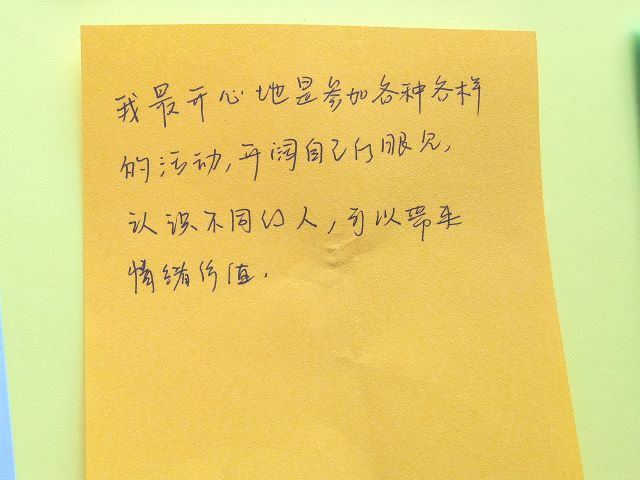 我最开心地是参加各种各样
的活动,开阔自己的眼见,
认识不同的人,可以带来
情绪价值.